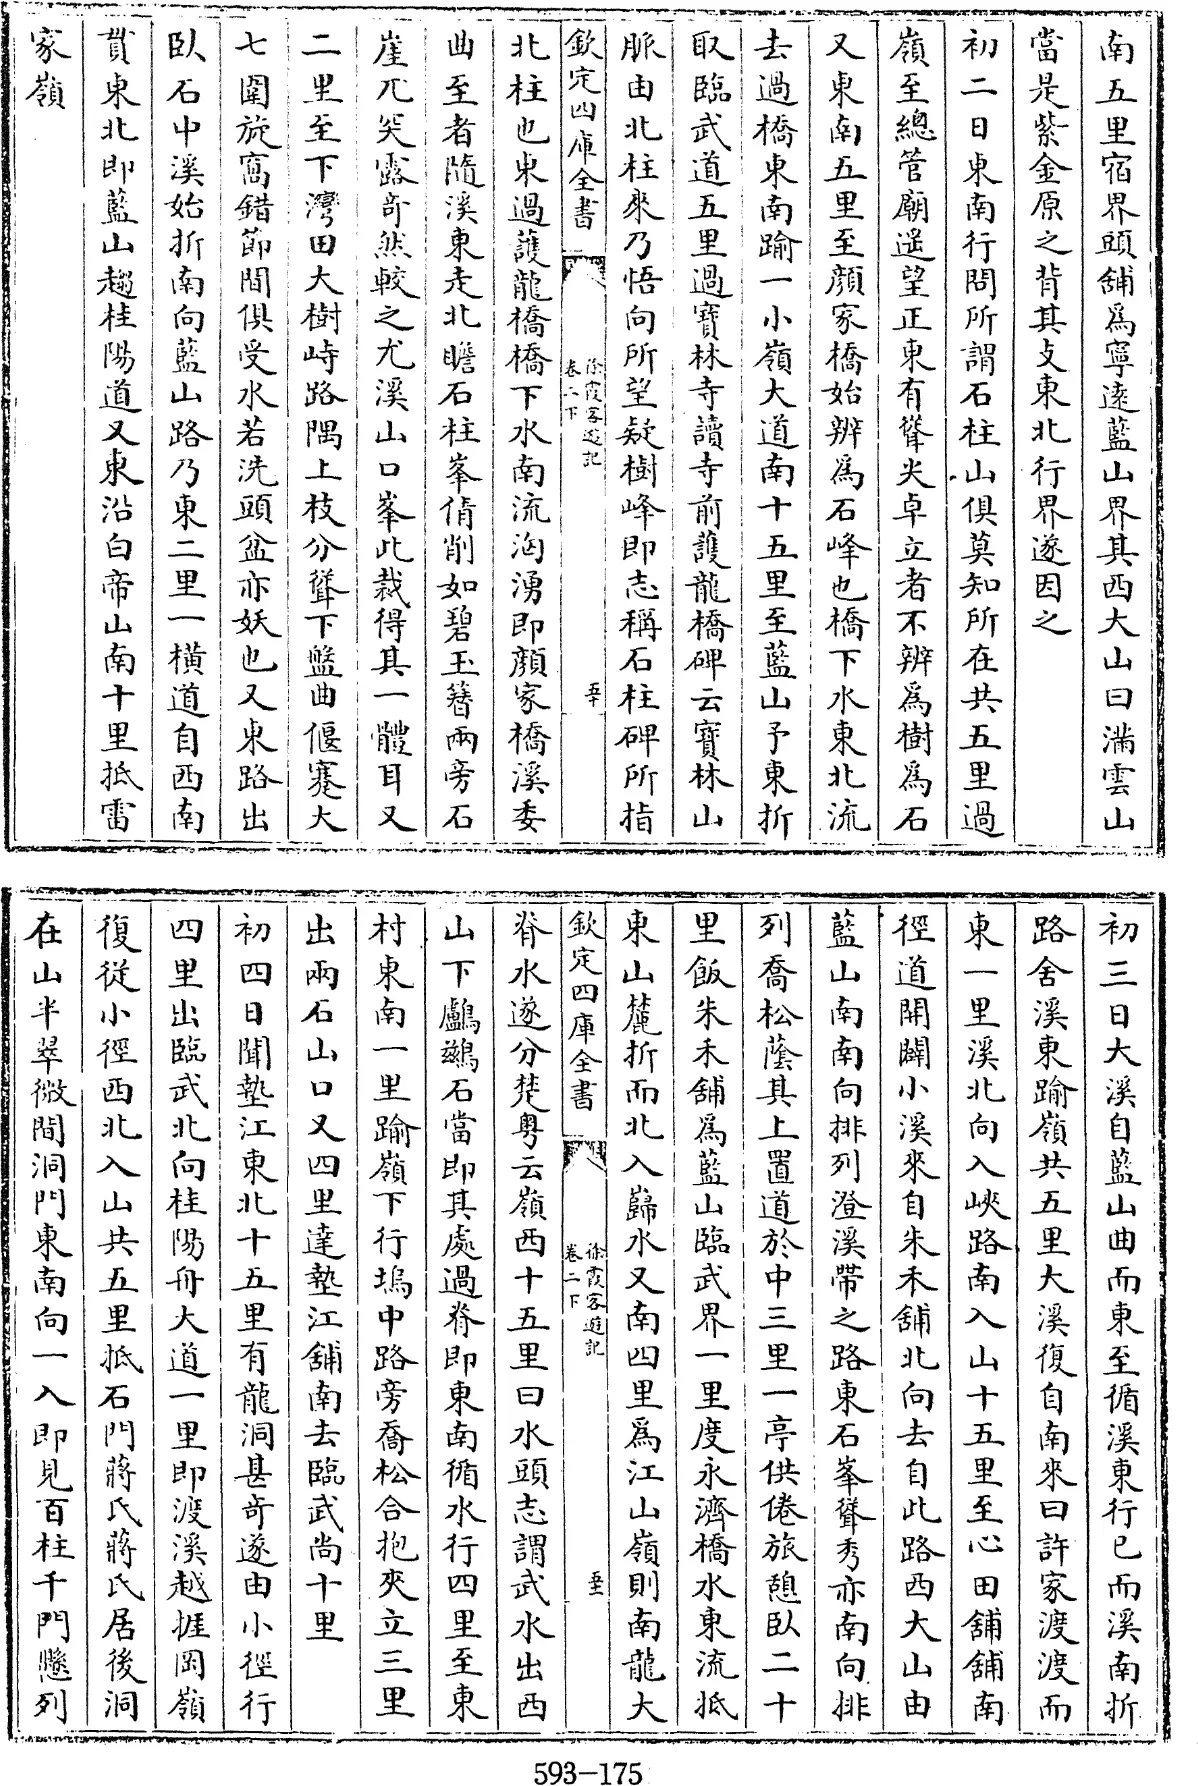 南五里宿界頭舖爲寧逺藍山界其西大山曰滿雲山
當是紫金原之背其支東北行界遂因之
初二日東南行問所謂石柱山俱莫知所在共五里過
嶺至總管廟遥望正東有聳尖卓立者不辨爲樹爲石
又東南五里至顔家橋始辨爲石峰也橋下水東北流
去過橋東南踰一小嶺大道南十五里至藍山予東折
取臨武道五里過寳林寺讀寺前䕶龍橋碑云寳林山
脈由北柱來乃悟向所望疑樹峰即志稱石柱碑所指
欽定四庫全書
徐霞客遊記
卷二下
五十
北柱也東過䕶龍橋橋下水南流洶湧即顔家橋溪委
曲至者隨溪東走北瞻石柱峯倩削如碧玉簪兩旁石
崖兀突露竒然較之尤溪山口峯此裁得其一體耳又
二里至下灣田大樹峙路隅上枝分聳下盤曲偃蹇大
七圍旋窩錯節間俱受水若洗頭盆亦妖也又東路出
臥石中溪始折南向藍山路乃東二里一横道自西南
貫東北即藍山趨桂陽道又東沿白帝山南十里抵雷
家嶺
初三日大溪自藍山曲而東至循溪東行已而溪南折
路舍溪東踰嶺共五里大溪復自南來曰許家渡渡而
東一里溪北向入峽路南入山十五里至心田舖舖南
徑道開闢小溪來自朱禾舖北向去自此路西大山由
藍山南南向排列澄溪帶之路東石峯聳秀亦南向排
列喬松蔭其上置道於中三里一亭供倦旅憩臥二十
里飯朱禾舖爲藍山臨武界一里度永濟橋水東流抵
東山麓折而北入巋水又南四里爲江山嶺則南龍大
欽定四庫全書
徐霞客遊記
卷二下
五十一
脊水遂分楚粤云嶺西十五里曰水頭志謂武水出西
山下鸕鷀石當即其處過脊即東南循水行四里至東
村東南一里踰嶺下行塢中路旁喬松合抱夾立三里
出兩石山口又四里達墊江舖南去臨武尚十里
初四日聞墊江東北十五里有龍洞甚竒遂由小徑行
四里出臨武北向桂陽州大道一里即渡溪越捱岡嶺
復從小徑西北入山共五里抵石門蔣氏蔣氏居後洞
在山半翠微間洞門東南向一入即見百柱千門懸列
593-175